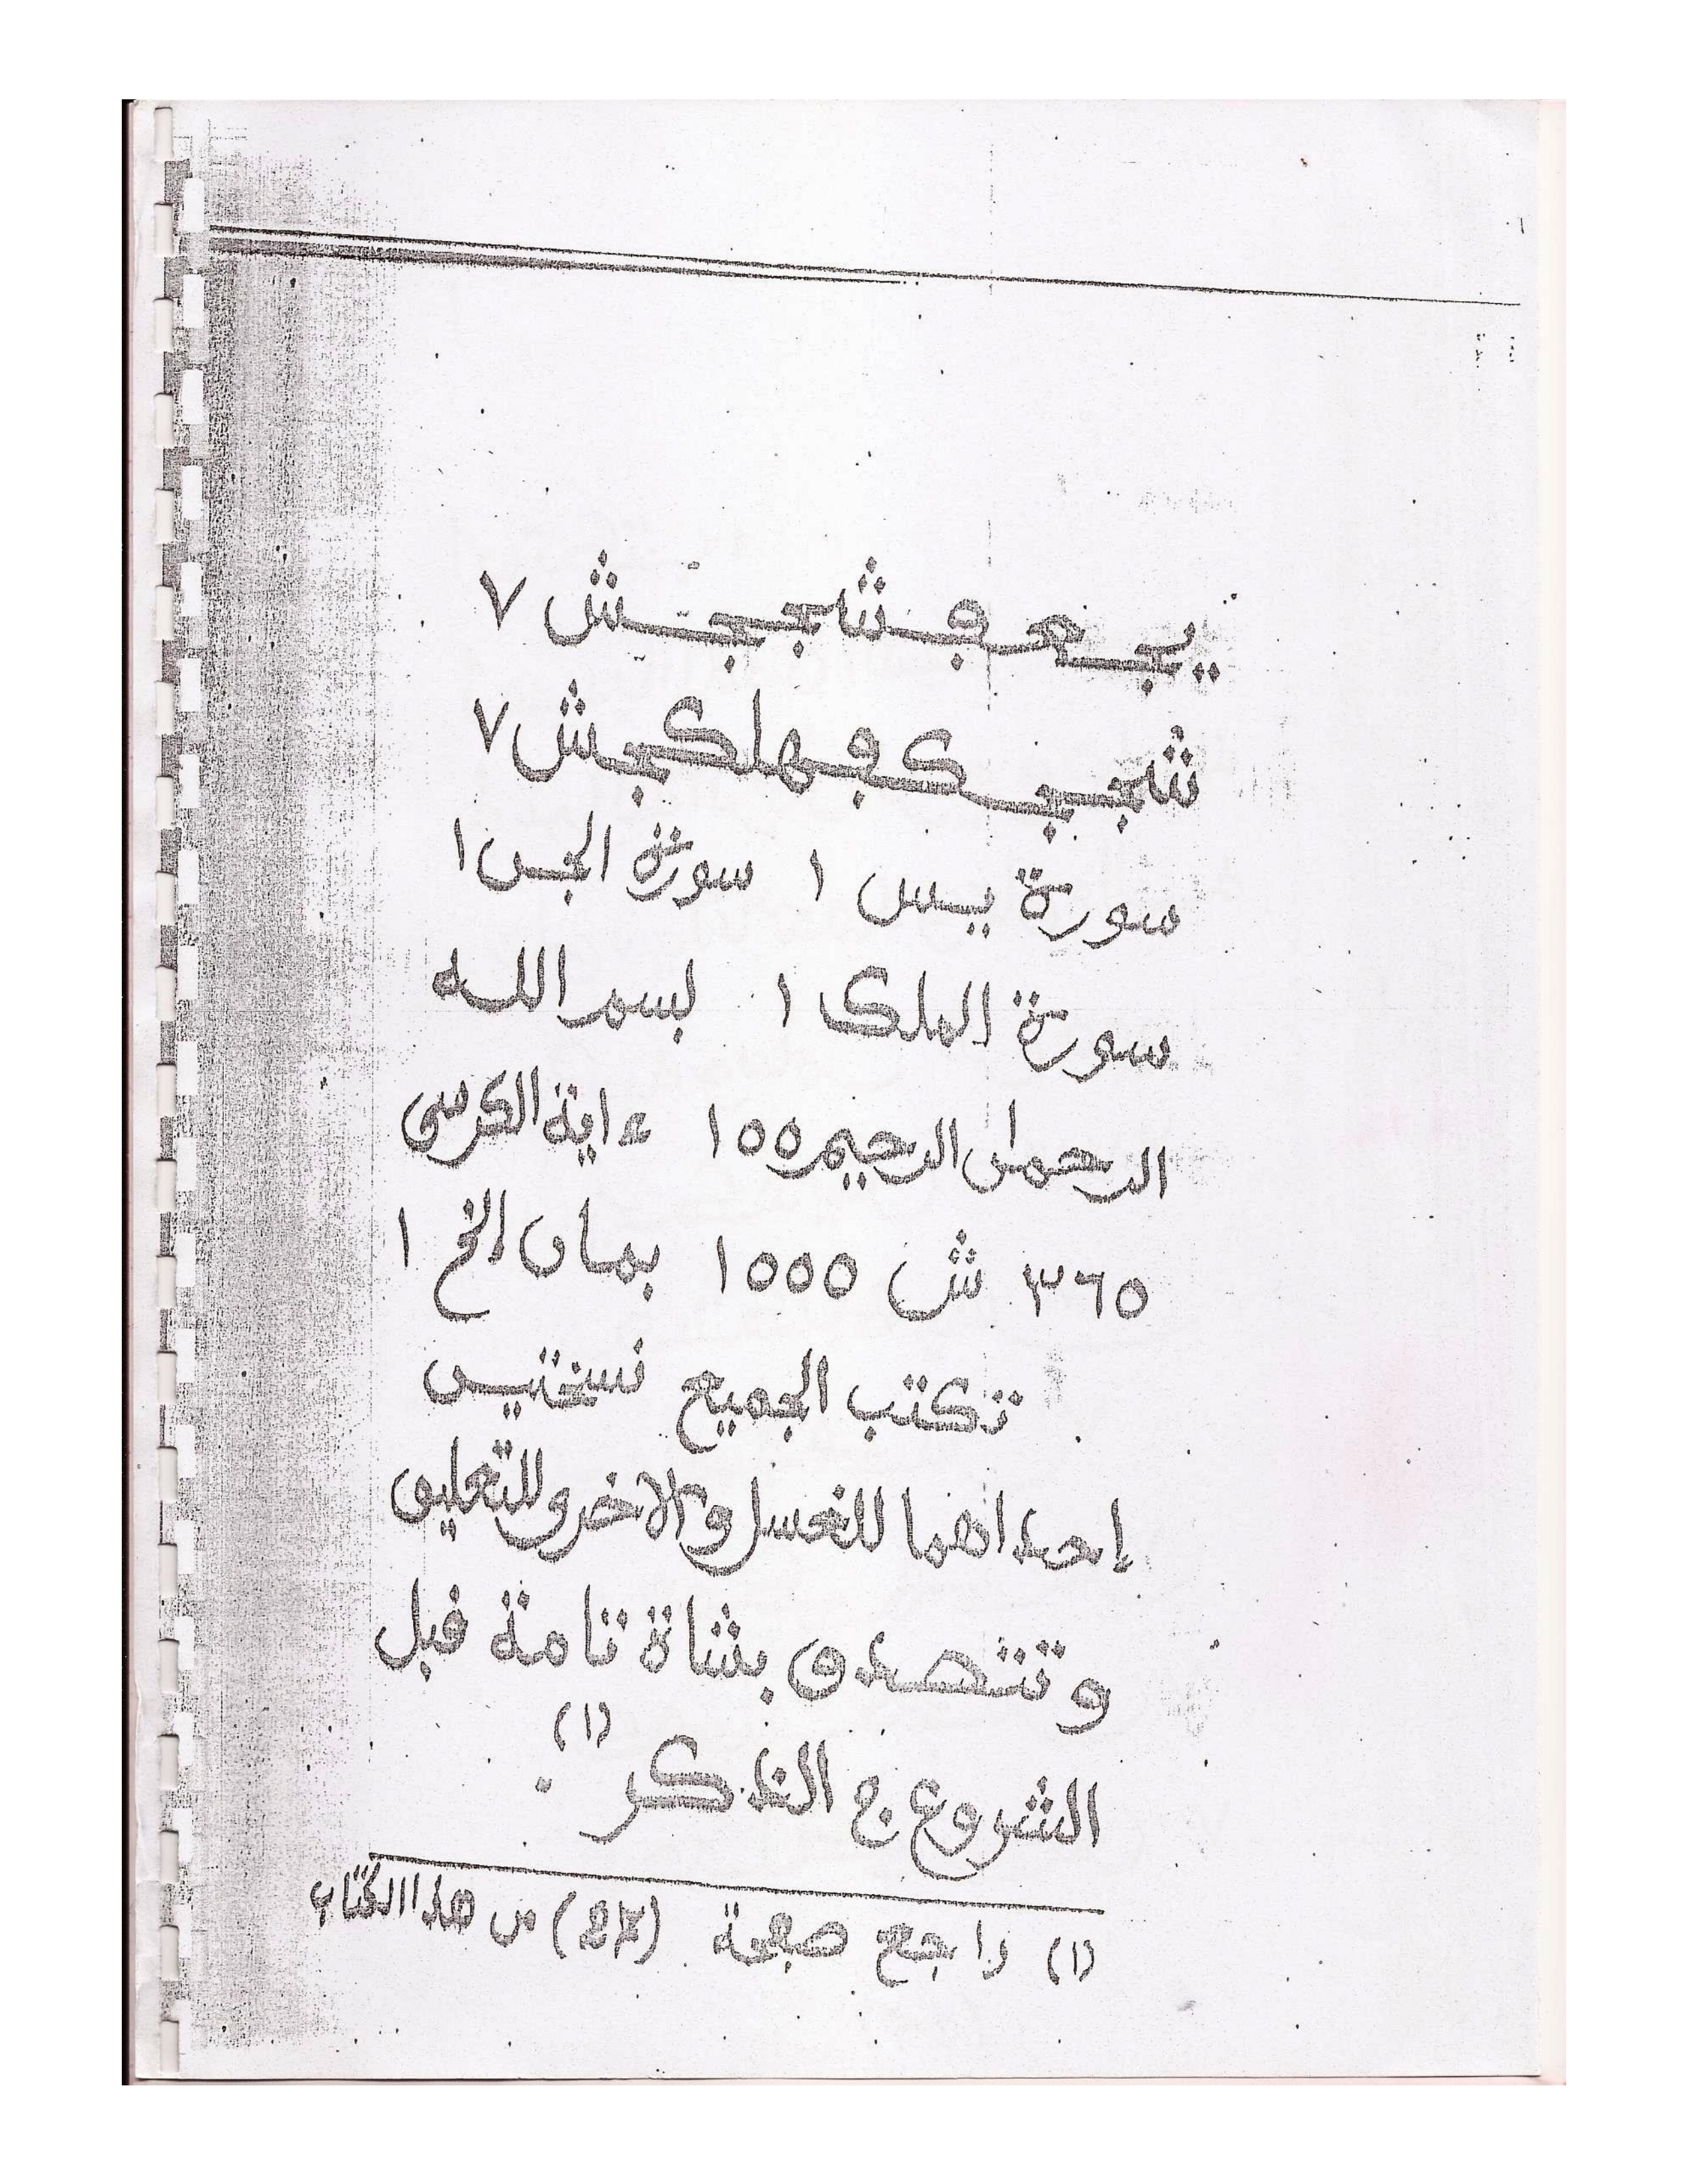 سورة يس ١ سورة الجن ١
سورة الملك ١ بسم الله
الرحمان الرحيم ١٥٥ ءاية الكرسى
٣٦٥ ش ١٥٥٥ بمان الخ ١
تكتب الجميع نسختين
إحداهما للغسل والاخرى للتعليق
وتتصدق بشاة تامة قبل
الشروع في الذكر (١).
(١) راجع صفحة من هذا الكتاب